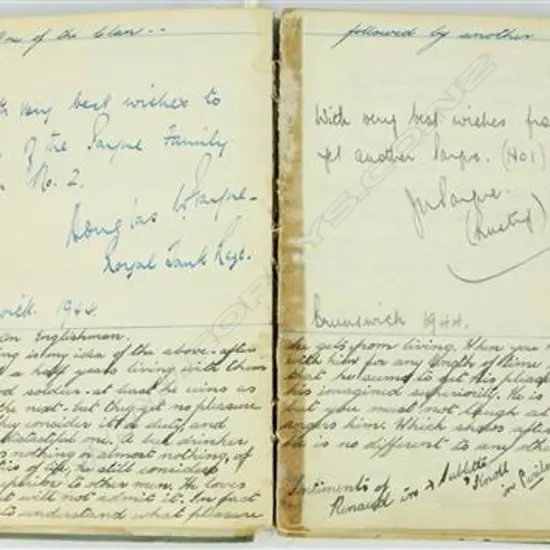 One of the Clan --
very best wishes to
of the Payne Family
No. 2.
Douglas
Royal Tank Regt.
1944.
an Englishman.
ing is my idea of the above - after
a half years living with them
soldier - at least he wins as
the rest - but they get no pleasure
they consider it a duty and
distasteful one. A drinker
nothing or almost nothing, of
of life, he still considers
superior to other men. He loves
but will not admit it. In fact
to understand what pleasure
followed by another
With very best wishes
yet another Payne. (No 1)
Payne.
Brunswick 1944.
he gets from living. When you
with him for any length of time
that he seems to get his
his imagined superiority. He is
but you must not laugh at
angers him. Which shows after
he is no different to any other
Sentiments of
Renauld in →
in